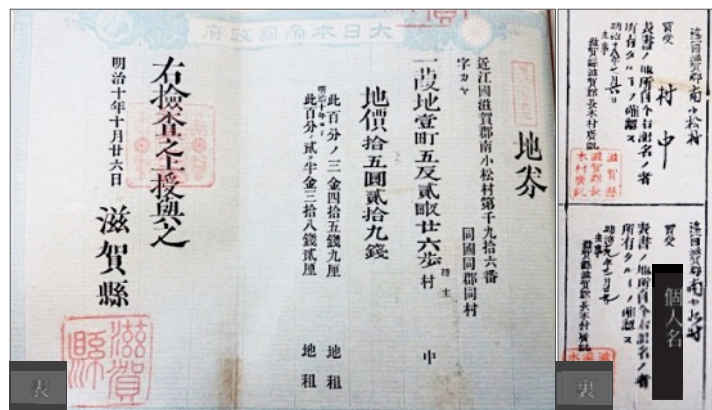 大日本帝國政府
地券
近江國滋賀郡南小松村第千九拾六番
字カヤ
同國同郡同村
一葭地壹町五反貳畝廿六歩
持主
村 中
地價拾五圓貳拾九錢
此百分ノ三金四拾五錢九厘 地租
明治十年ヨリ
此百分ノ貳ケ半金三拾八錢貳厘 地租
右檢査之上授與之
明治十年十月廿六日
滋賀縣
滋賀縣
表
近江國滋賀郡南小松村
買受
村中
表書ノ地所自今右記名ノ者
所有タルヿヲ確認ス
滋賀縣滋賀郡長木村廣凱
滋賀縣
滋賀郡長
木村廣凱
近江國滋賀郡南小松村
買受
個人名
表書ノ地所自今右記名ノ者
所有タルヿヲ確認ス
滋賀縣滋賀郡長木村廣凱
裏